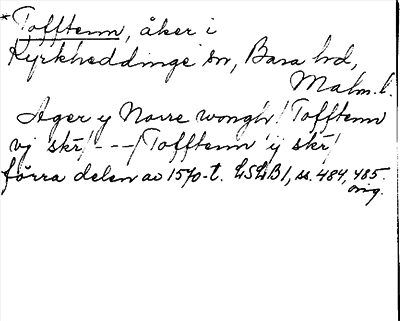 *Tofftenn, åker i
Kyrkheddinge sn, Bara hd,
Malm. l.
Ager y Norre wongh / Tofftenn
vj skr / --- / Tofftenn ij skr /
förra delen av 1570-t. LSLB1, ss. 484, 485.
orig.